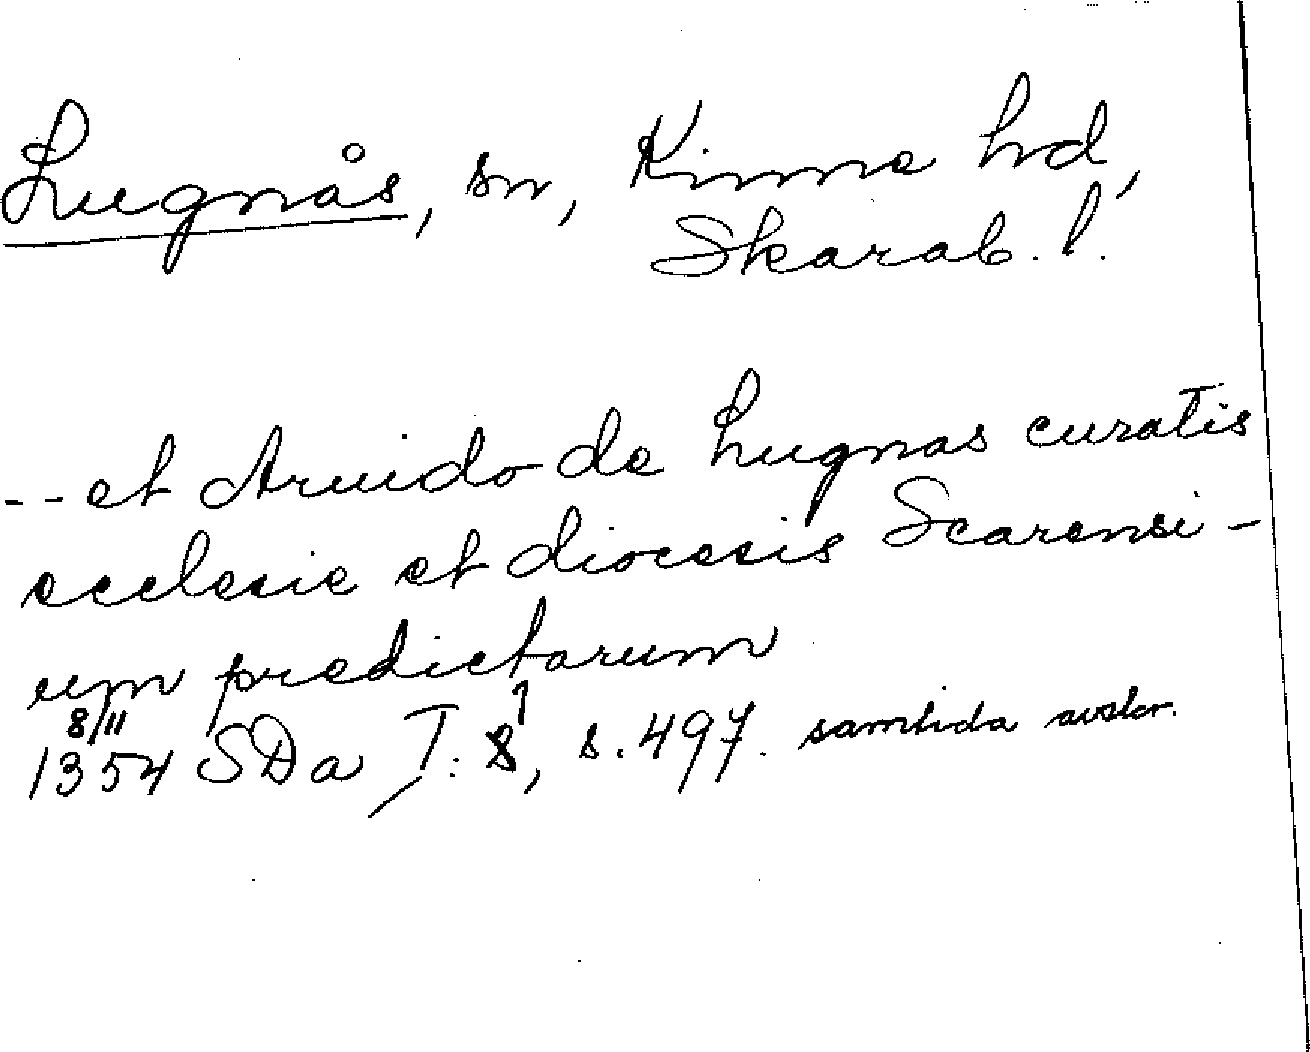 Lugnås, sn, Kinne hd,
Skarab. l.
-- et Aruido de Lugnas curatis
ecclesie et diocesis Scarensi-
um predictarum
8/11
1354 SDa T: 1, s. 497. samtida avskr.